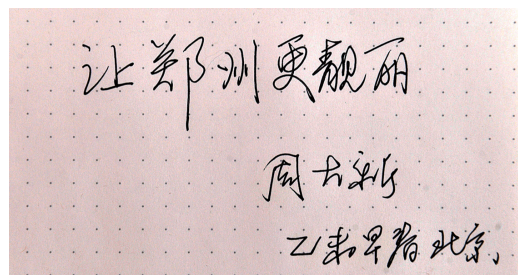 让郑州更靓丽
周大新
乙未早春北京